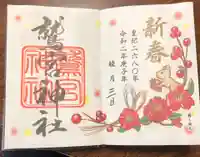 新春
皇紀二六八〇年
令和二年庚子年
睦月三日
鷲宮神社